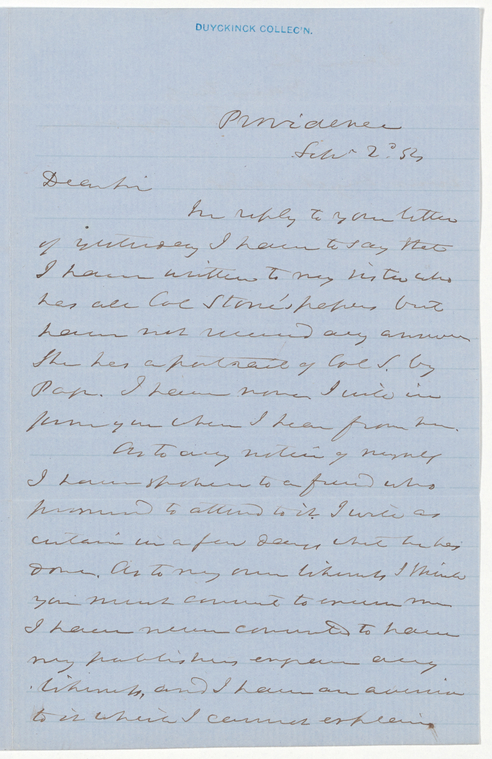 DUYCKINCK COLLEC'N.
Providence
Sept 2d 54
Dear Sir
In reply to your letter
of yesterday I have to say that
I have written to my sister who
has all Col Stone's papers but
have not received any answer
She has a portrait of Col S. by
Page. I have none. I will in
form you when I hear from her.
As to any notice of myself
I have spoken to a friend who
promised to attend to it. I will as
certain in a few days what he has
done. As to my own likeness I think
you must consent to excuse me
I have never consented to have
my publishers engrave any
likeness, and I have an aversion
to it which I cannot explain